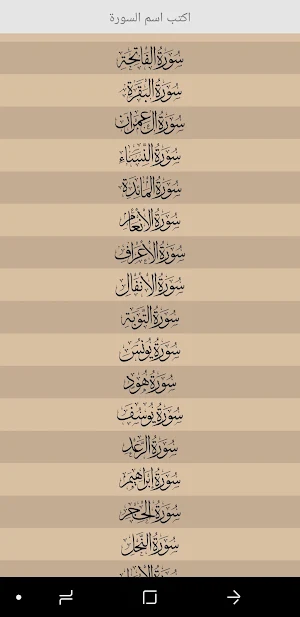 اكتب اسم السورة
سُورَةُ الفَاتِحَة
سُورَةُ البَقَرَة
سُورَةُ آل عِمْرَان
سُورَةُ النِّسَاء
سُورَةُ المَائدة
سُورَةُ الأَنْعَام
سُورَةُ الأَعْرَاف
سُورَةُ الأَنْفَال
سُورَةُ التَّوْبَة
سُورَةُ يُونُس
سُورَةُ هُود
سُورَةُ يُوسُف
سُورَةُ الرَّعْد
سُورَةُ إِبْرَاهِيم
سُورَةُ الحِجْر
سُورَةُ النَّحْل